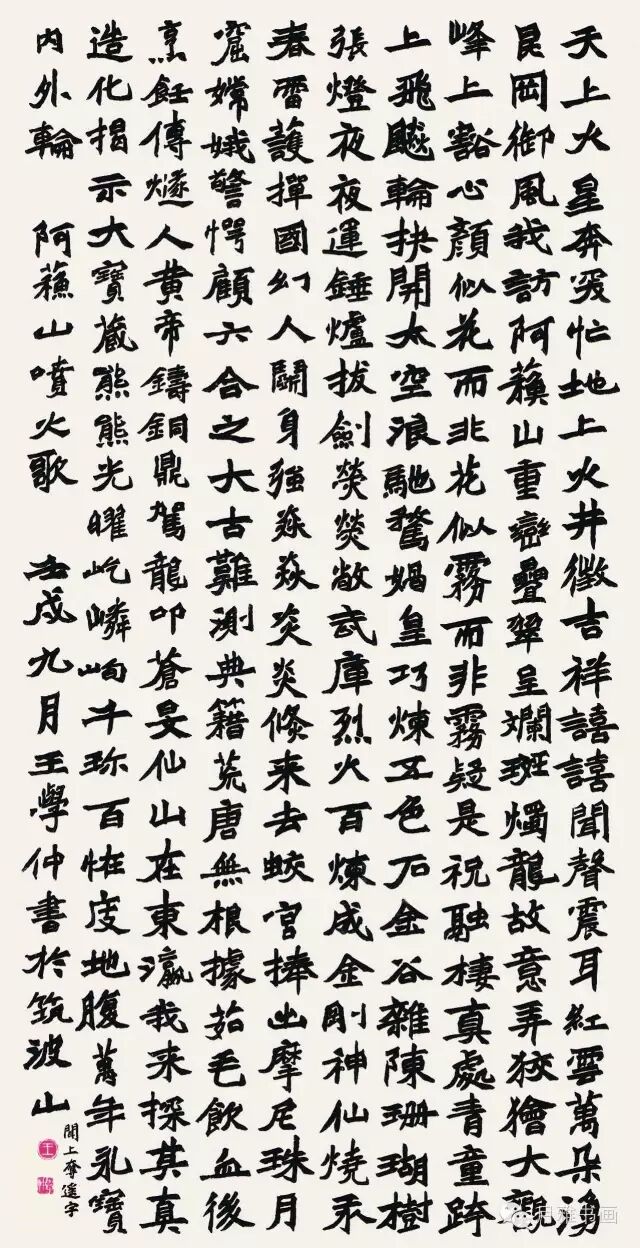 天上火星奔忽忙地上火井徵吉祥譆譆聞聲震耳紅雲萬朵湧
昆岡御風我訪阿蘓山重巒疊翠呈斕斑燭龍故意弄狡獪大觀
峰上豁心顏似花而非花似霧而非霧疑是祝融棲真處青童跨
上飛飈輪抉開太空浪馳騖媧皇巧煉五色石金谷雜陳珊瑚樹
張燈夜夜運錘爐拔劍熒熒敞武庫烈火百煉成金剛神仙燒汞
春雷護撣國幻人鬭身強焱焱炎炎倏来去蛟宮捧出摩尼珠月
窟嫦娥驚愕顧六合之大古難測典籍荒唐無根據茹毛飲血後
烹飪傳燧人黄帝鑄銅鼎駕龍叩蒼旻仙山在東瀛我来探其真
造化揭示大寶藏熊熊光曜屹嶙峋千珍百怪庋地腹萬年永寶
内外輪 阿蘓山噴火歌 壬戌九月王學仲書於筑波山
聞上奪還字